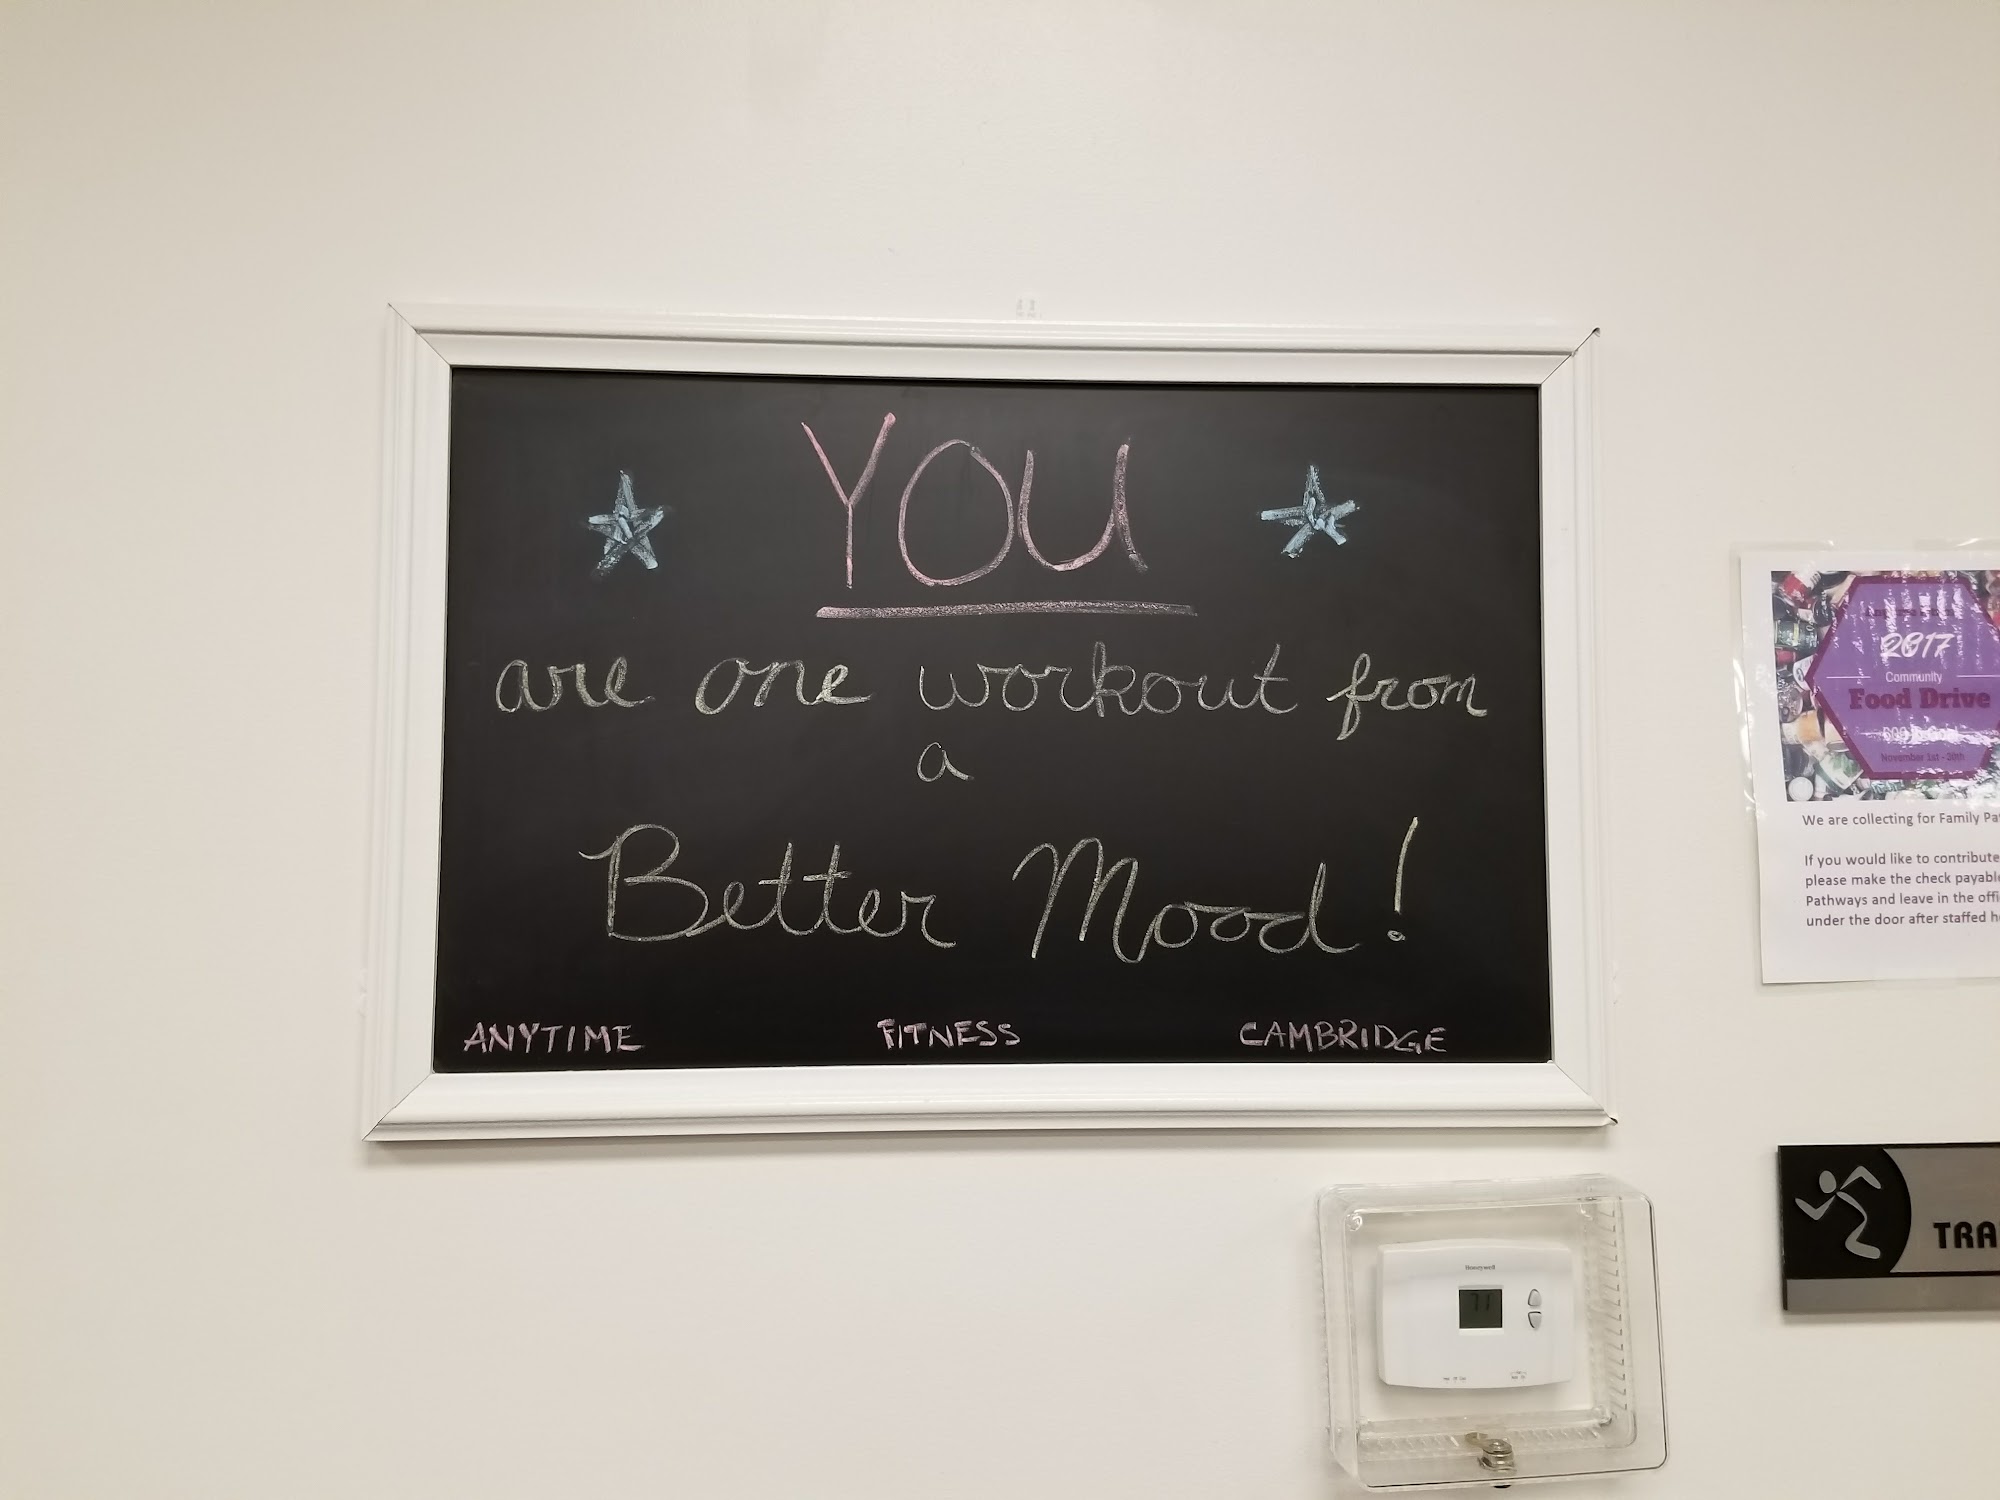 YOU
are one workout from
a
Better Mood!
ANYTIME FITNESS CAMBRIDGE
2017
Community
Food Drive
November 1st - 30th
We are collecting for Family
If you would like to contribute
please make the check payable
Pathways and leave in the
under the door after staffed
Honeywell
71